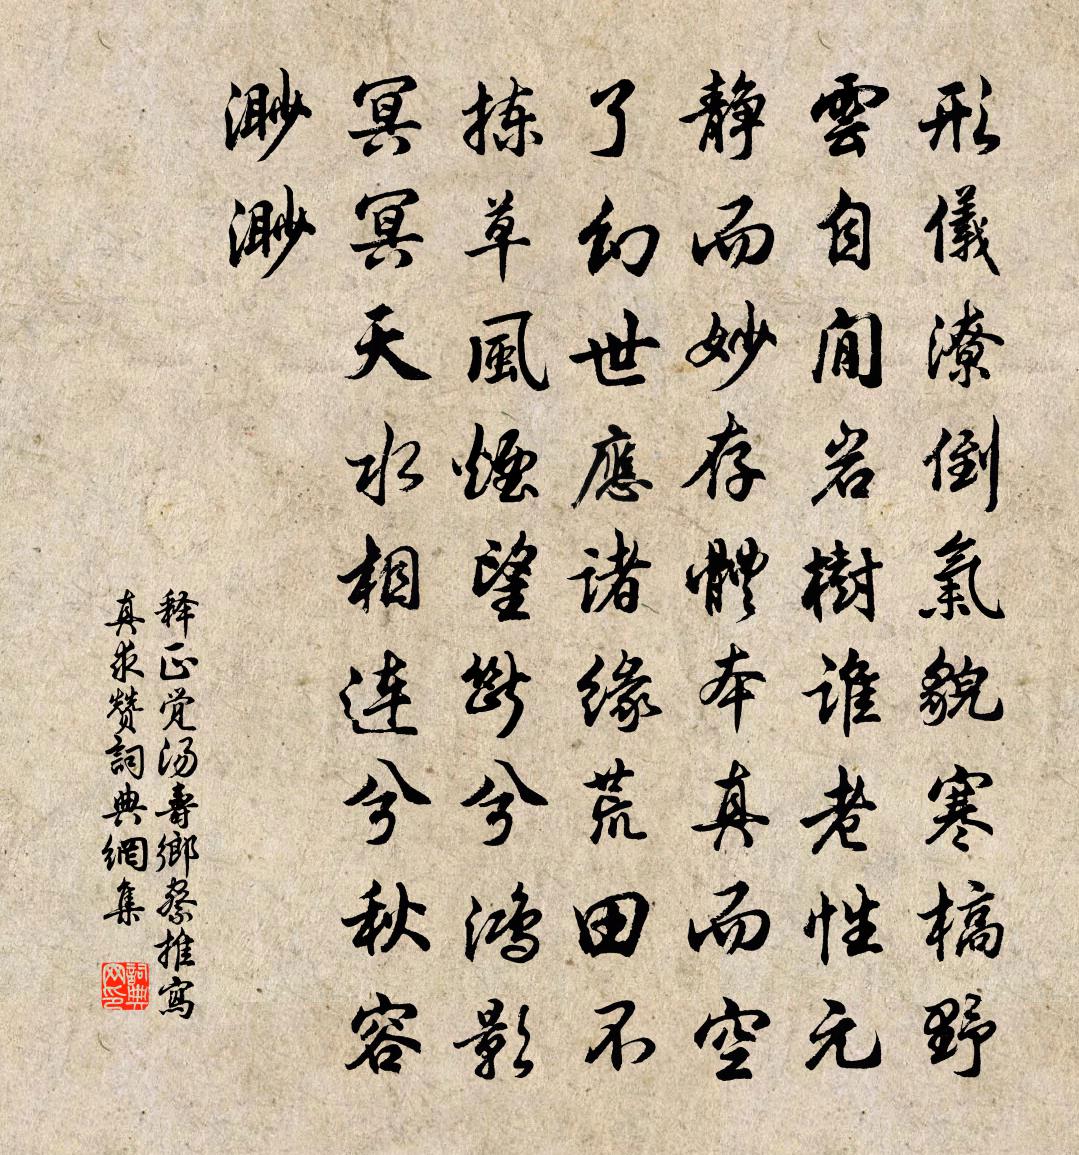 形儀潦倒氣貌寒槁野
雲自閒岩樹誰老性元
靜而妙存體本真而空
了幻世應諸緣荒田不
揀草風煙望斷兮鴻影
冥冥天水相連兮秋容
渺渺
释正觉汤壽鄉察推寫
真求赞詞典網集
詞典
网印